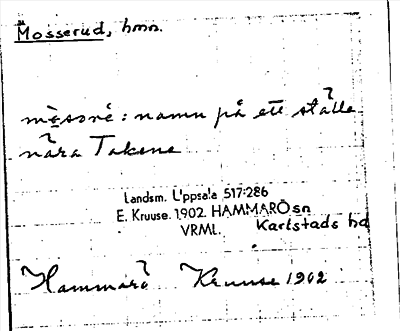 Mosserud, hmn.
mèsơrè : namn på ett ställe
nära Takene
Landsm. Uppsala 517:286
E. Kruuse. 1902. HAMMARÖ sn
VRML. Karlstads hd
Hammarö Kruuse 1902